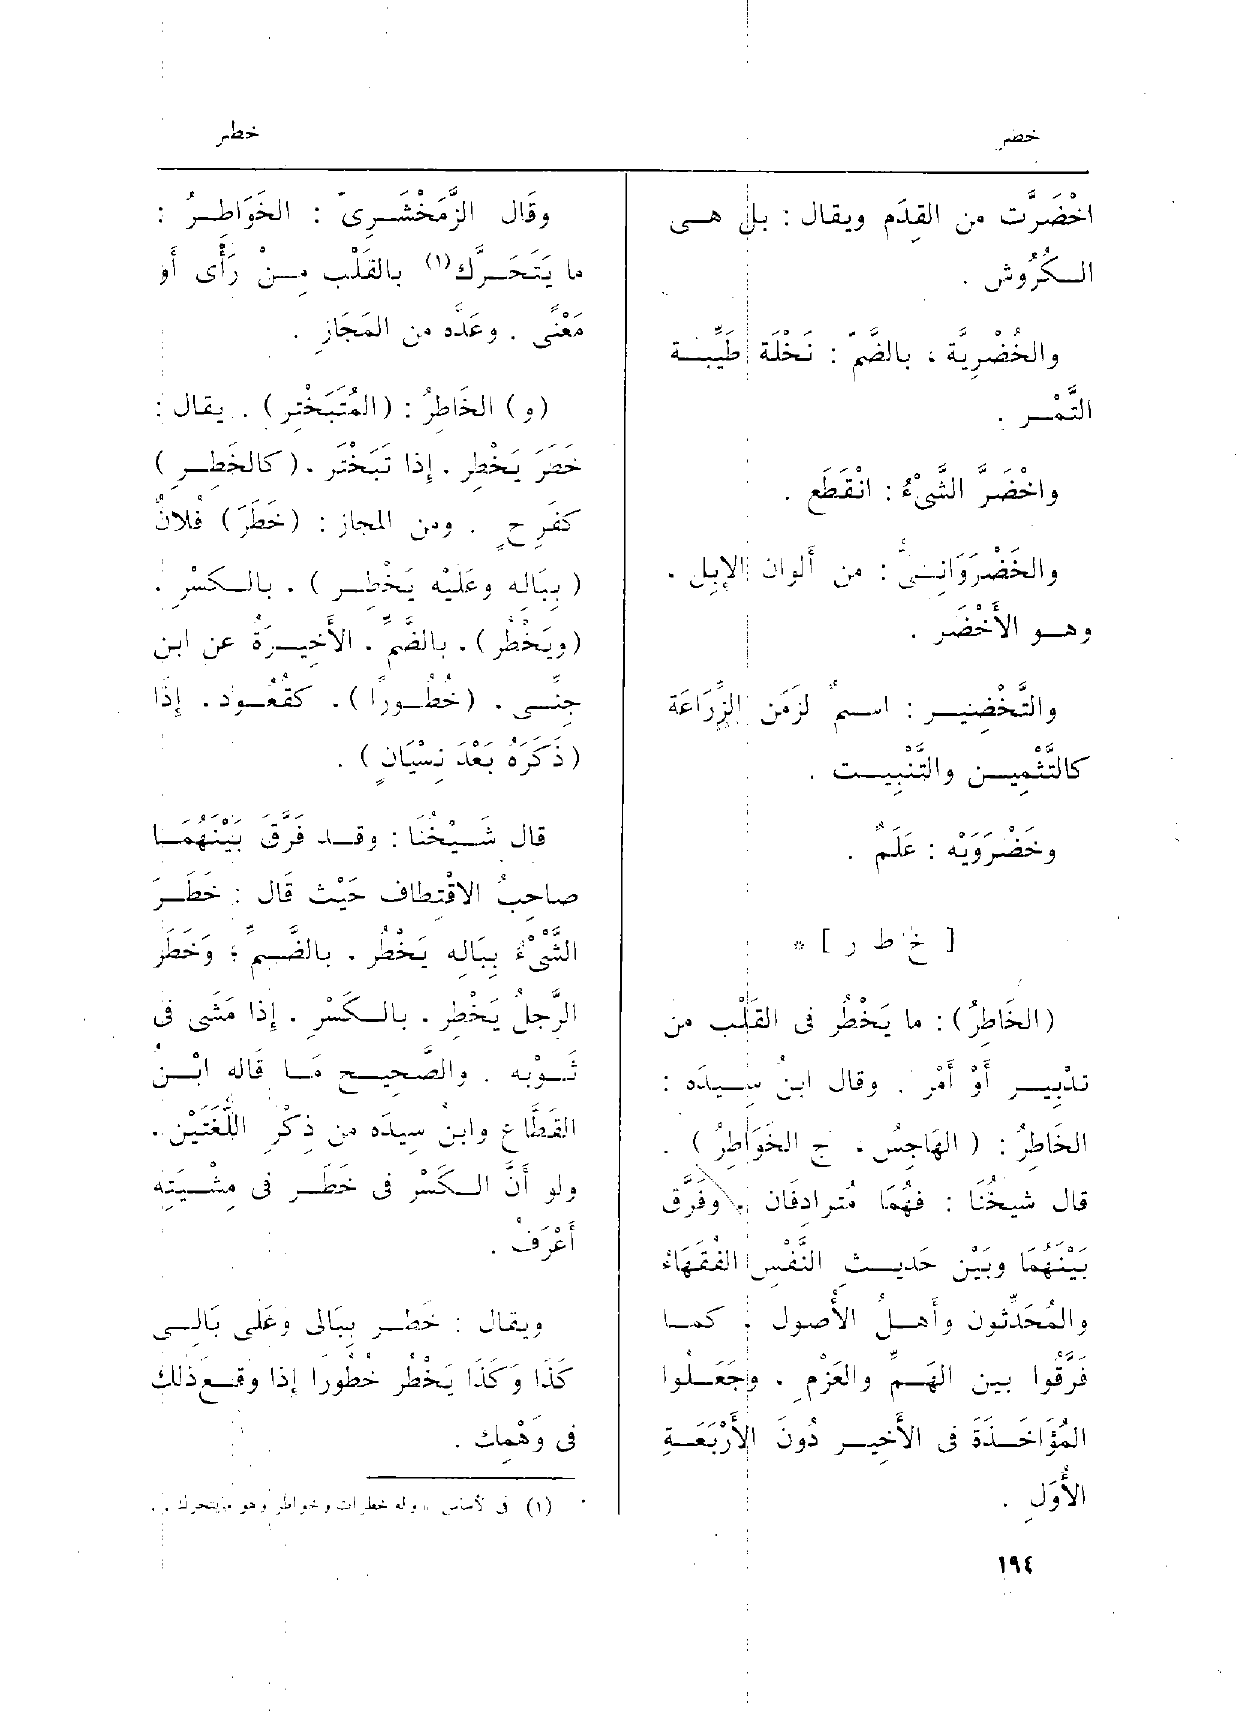 خضر
خطر
اخْضَرَّت من القِدَم ويقال : بل هــى
الــكُرُوش .
والخُضْرِيَّة ، بالضَّمّ : نَخْلَة طَيِّبَــة
التَّمْــر .
واخْضَرَّ الشَّىْءُ : انْقَطَع .
والخَضْرَوَانِــىُّ : من أَلوان الإِبِل .
وهــو الأَخْضَر .
والتَّخْضِيــر : اســمٌ لزَمَن الزِّرَاعَة
كالتَّثْمِيــن والتَّنْبِيــت .
وخَضْرَوَيْه : عَلَمٌ .
[ خ ط ر ] *
(الخَاطِرُ) : ما يَخْطُر فى القَلْب من
تَدْبِيــر أَوْ أَمْر . وقال ابنُ سِــيدَه :
الخَاطِرُ : ( الهَاجِسُ ، ج الخَوَاطِرُ ) .
قال شيخُنَا : فهُمَا مُترادِفَان . وفَرَّق
بَيْنَهُمَا وبَيْن حَدِيــث النَّفْسِ الفُقَهَاءُ
والمُحَدِّثُون وأَهــلُ الأُصول . كمــا
فَرَّقُوا بين الهَــمِّ والعَزْمِ . وجَعَــلوا
المُؤَاخَــذَة فى الأَخِيــر دُونَ الأَرْبَعَــةِ
الأُوَلِ .
وقال الزَّمَخْشَــرِىّ : الخَوَاطِــرُ :
ما يَتَحَــرَّك(١) بالقَلْب مِــنْ رَأْى أَو
مَعْنًى . وعَدَّه من المَجَازِ .
(و) الخَاطِرُ : (المُتَبَخْتِر) . يقال :
خَطَرَ يَخْطِر . إِذا تَبَخْتَر . (كالخَطِــر )
كفَرِحٍ . ومن المجاز : (خَطَرَ) فلانٌ
( بِبَالِه وعَلَيْه يَخْطِــر ) . بالــكَسْرِ .
(ويَخْطُر) . بالضَّمِّ . الأَخيــرَةُ عن ابن
جِنِّــى . (خُطُــورًا ) . كقُعُــود . إِذَا
(ذَكَرَهُ بَعْدَ نِسْيَانٍ ) .
قال شَــيْخُنَا : وقــد فَرَّقَ بَيْنَهُمَــا
صاحِبُ الاقْتِطاف حَيْث قَال : خَطَــرَ
الشَّىْءُ بِبَالِه يَخْطُر . بالضَّــمِّ ؛ وَخَطَر
الرَّجلُ يَخْطِر . بالــكَسْرِ . إِذا مَشَى فى
ثَــوْبِه . والصَّحِيــح مَــا قَاله ابْــنُ
القَطَّاع وابنُ سِيدَه من ذِكْرِ اللُّغَتَيْن .
ولو أَنَّ الــكَسْر فى خَطَــر فى مِشْــيَتِه
أَعْرَفُ .
ويقال : خَطَــر بِبَالِى وعَلَى بَالِــى
كَذَا وَكَذَا يَخْطُر خُطُورًا إِذا وقَــع ذلك
فى وَهْمِك .
(١) فى الأساس « وله خطرات وخواطر وهو ما يتحرك ..
١٩٤